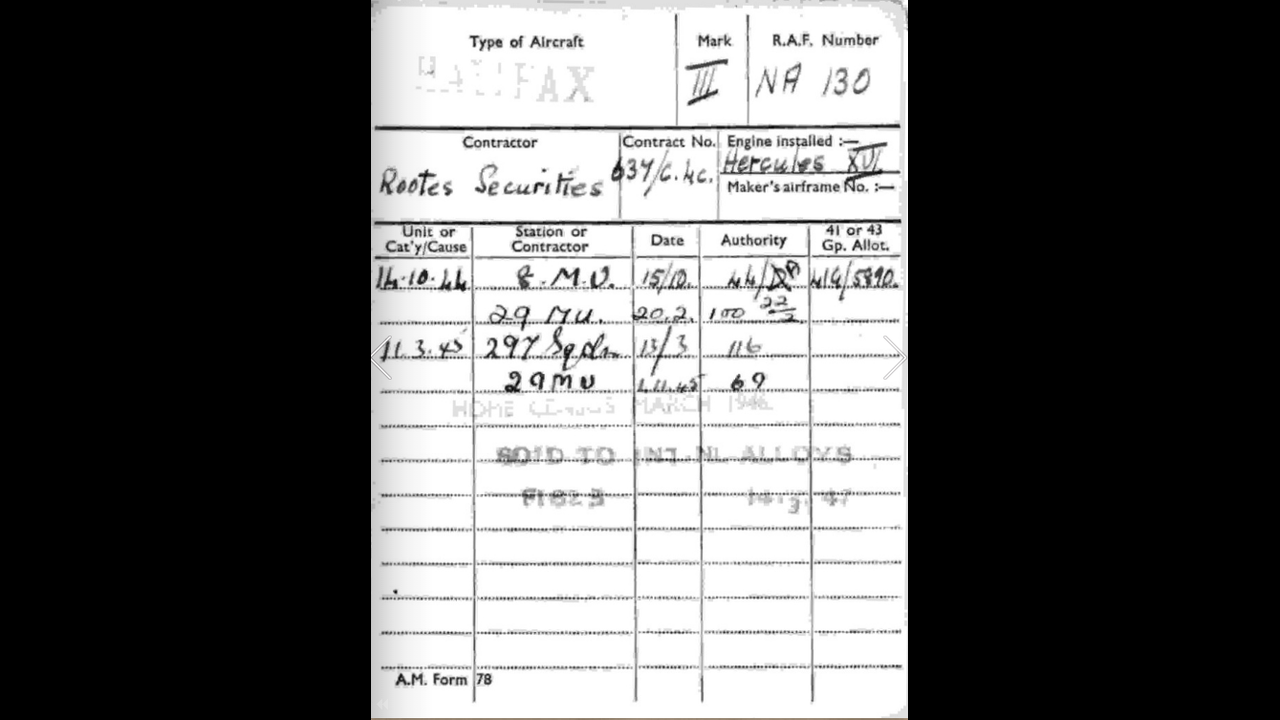 Type of Aircraft Mark R.A.F. Number
HALIFAX III NA 130
Contractor Contract No. Engine installed :—
Rootes Securities 637/C.4c. Hercules XVI
Maker's airframe No. :—
Unit or Cat'y/Cause Station or Contractor Date Authority 41 or 43 Gp. Allot.
14.10.44 8.M.U. 15/10. 44/ 41G/5890.
29 MU. 20.2. 100 22/2
11.3.45 297 Sqdn 13/3 116
29 MU 1.11.45 69
HOME CENSUS MARCH 1946
SOLD TO INT.NL ALLOYS
14.3.47
A.M. Form 78